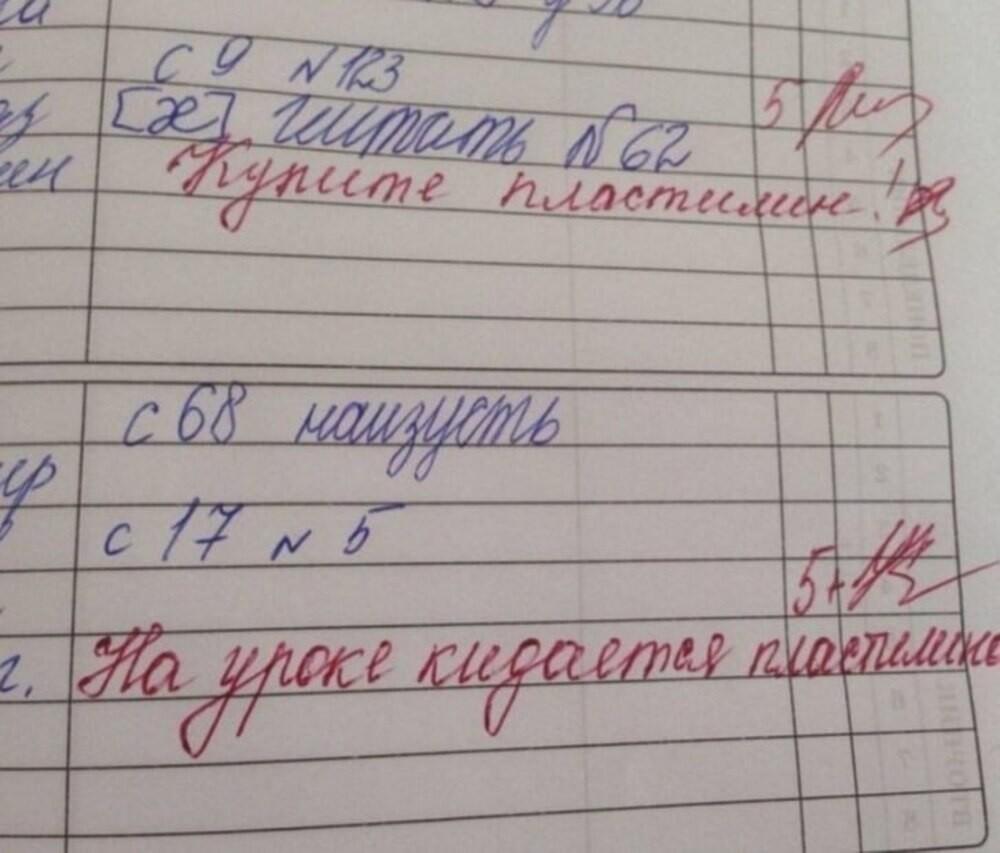 с 9 N 123
[æ] читать №62
5
Купите пластилин!
с 68 наизусть
с 17 N 5
5+
г. На уроке кидается пластилин